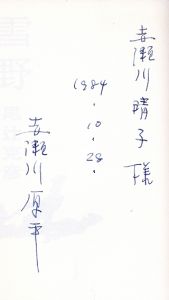 赤瀬川晴子様
1984.10.28.
赤瀬川原平